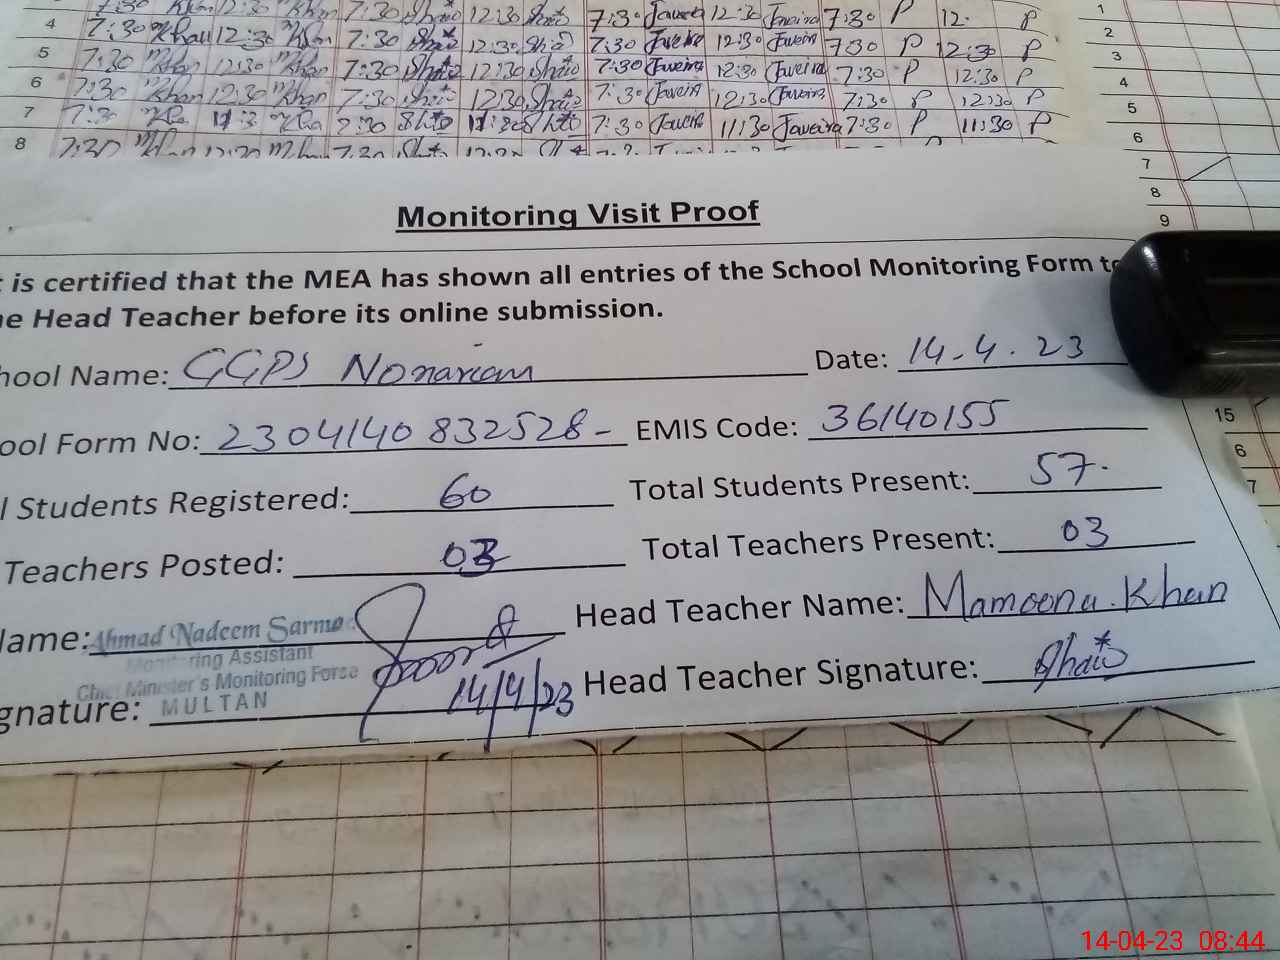 4 7:30 Khan 12:30 Khan 7:30 Shais 12:30 Shais 7:30 Javeira 12:30 Javeira 7:30 P 12. P
5 7:30 Khan 12:30 Khan 7:30 Shais 12:30 Shais 7:30 Javeira 12:30 Javeira 7:30 P 12:30 P
6 7:30 Khan 12:30 Khan 7:30 12:30 Shais 7:30 Javeira 12:30 Javeira 7:30 P 12:30 P
7 7:30 7:30 7:30 11:30 Javeira 7:30 P 11:30 P
8 7:30
1
2
3
4
5
6
7
8
9
15
6
7
Monitoring Visit Proof
t is certified that the MEA has shown all entries of the School Monitoring Form to
he Head Teacher before its online submission.
hool Name: GGPS Date: 14-4.23
ool Form No: 2304140832528- EMIS Code: 36140155
l Students Registered: 60 Total Students Present: 57.
Teachers Posted: 03 Total Teachers Present: 03
Name: Ahmad Nadeem Sarmad Head Teacher Name: Mamoona.Khan
Monitoring Assistant
Chief Minister's Monitoring Force
gnature: MULTAN 14/4/23 Head Teacher Signature:
14-04-23 08:44